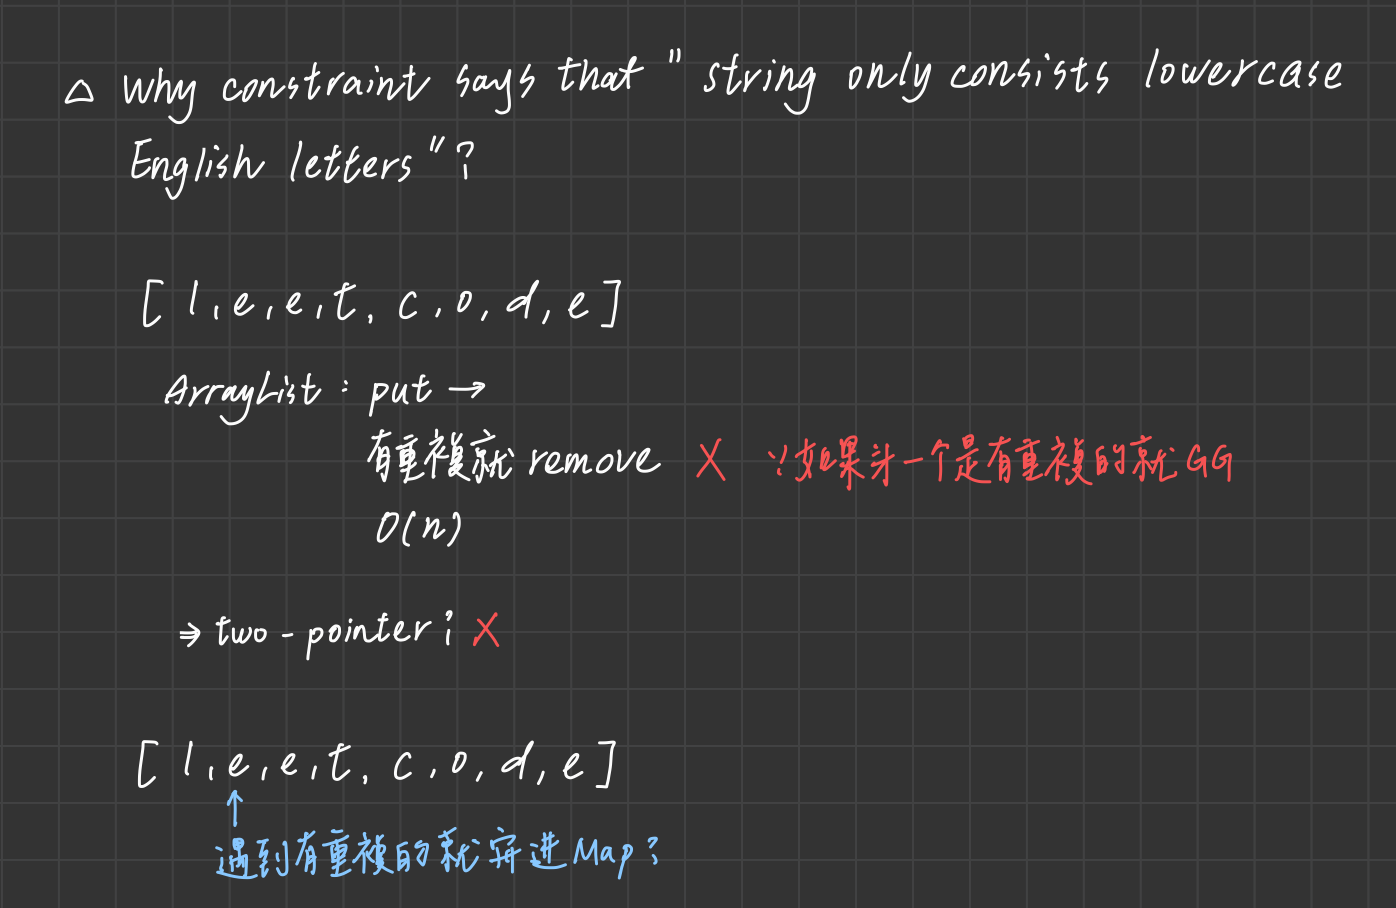 △ Why constraint says that " string only consists lowercase
English letters"?
[ l, e, e, t, c, o, d, e ]
ArrayList : put →
有重複就 remove X ∵如果第一个是有重複的就GG
O(n)
⇒ two - pointer ? X
[ l, e, e, t, c, o, d, e ]
↑
遇到有重複的就 进 Map ?